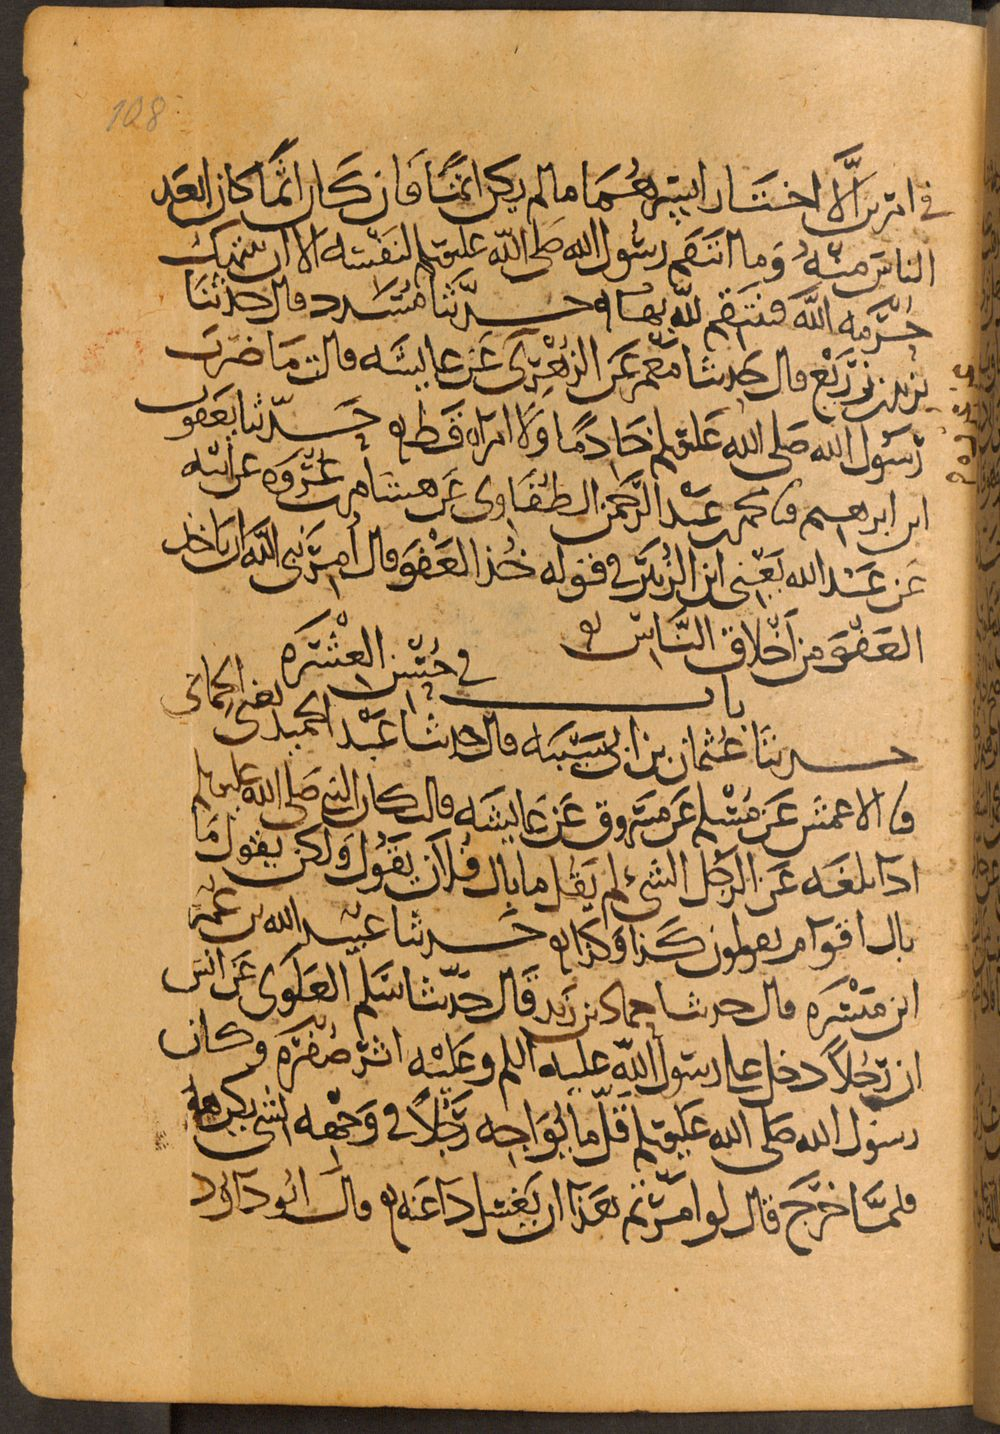 108
في امرين الا اختار ايسرهما ما لم يكن اثما فان كان اثما كان ابعد
الناس منه وما انتقم رسول الله صلى الله عليه وسلم لنفسه الا ان تنتهك
حرمة الله فينتقم لله بها ه حدثنا مسدد قال حدثنا
يزيد بن زريع قال حدثنا معمر عن الزهري عن عايشه قالت ما ضرب
رسول الله صلى الله عليه وسلم خادما ولا امراه قط ه حدثنا يعقوب
ابن ابرهيم نا محمد بن عبد الرحمن الطفاوي عن هشام بن عروه عن ابيه
عن عبد الله يعني ابن الزبير في قوله خذ العفو قال أمر نبي الله ان ياخذ
العفو من أخلاق الناس ه
باب في حسن العشره
حدثنا عثمان بن ابي شيبه قال حدثنا عبد الحميد يعني الحماني
نا الاعمش عن مسلم عن مسروق عن عايشه قالت كان النبي صلى الله عليه وسلم
اذا بلغه عن الرجل الشيء لم يقل ما بال فلان يقول ولكن يقول ما
بال اقوام يقولون كذا وكذا ه حدثنا عبيد الله بن عمر
ابن ميسره قال حدثنا حماد بن زيد قال حدثنا سلم العلوي عن انس
ان رجلا دخل على رسول الله عليه السلم وعليه اثر صفره وكان
رسول الله صلى الله عليه وسلم قل ما يواجه رجلا في وجهه بشي يكرهه
فلما خرج قال لو امرتم هذا ان يغسل ذا عنه ه قال ابو داود